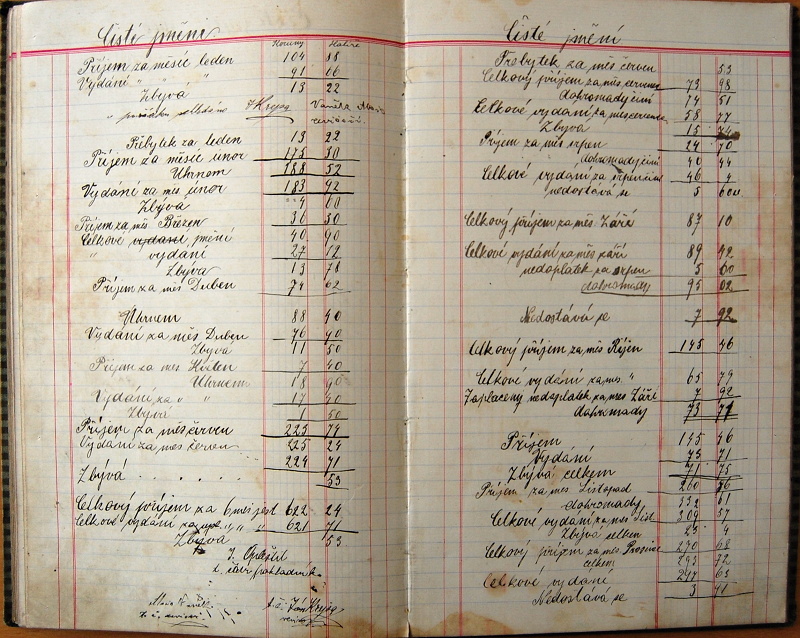 Čisté jmění
Koruny Haléře
Příjem za měsíc leden 104 38
Vydání " " 91 16
Zbývá 13 22
J Krejza Vaněk
Přebytek za leden 13 22
Příjem za měsíc únor 175 30
Úhrnem 188 52
Vydání za měs únor 183 92
Zbývá 4 60
Příjem za měs Březen 36 30
Celkové jmění 40 90
" vydání 27 12
Zbývá 13 78
Příjem za měs Duben 74 62
Úhrnem 88 40
Vydání za měs Duben 76 90
Zbývá 11 50
Příjem za mes Květen 7 40
Uhrnem 18 90
Vydání za " " 17 40
Zbývá 1 50
Příjem za měs červen 223 74
Vydání za měs červen 225 24
224 71
Zbývá . . . . . . 53
Celkový příjem za 6 měs jest 622 24
Celkové vydání za 621 71
Zbývá 53
t. č. pokladník
t. č. Jan Krejza
Čisté jmění
Přebytek za měs červen 53
Celkový příjem za měs července 73 98
dohromady činí 74 51
Celkové vydání za měs července 58 77
Zbývá 15 74
Příjem za měs srpen 24 70
dohromady činí 40 44
Celkové vydání za srpen 46 4
nedostává se 5 60
Celkový příjem za měs Září 87 10
Celkové vydání za měs září 89 42
nedoplatek za srpen 5 60
dohromady 95 02
Nedostává se 7 92
Celkový příjem za měs Říjen 145 46
Celkové vydání za mes " 65 79
Zaplacený nedoplatek za mes Září 7 92
dohromady 73 71
Příjem 145 46
Vydání 73 71
Zbývá celkem 71 75
Příjem za mes Listopad 260 86
dohromady 332 61
Celkové vydání za měs List 309 57
Zbývá celkem 23 4
Celkový příjem za měs Prosinec 270 68
celkem 293 72
Celkové vydání 297 63
Nedostává se 3 91